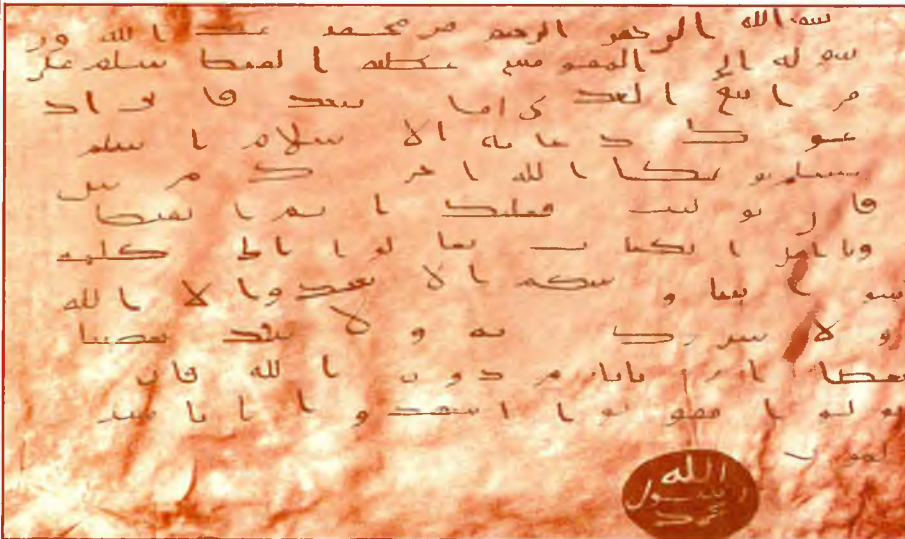 بسم الله الرحمن الرحيم من محمد عبد الله ور
سوله الى المقوقس عظيم القبط سلم على
من اتبع الهدى اما بعد فانى اد
عوك بدعاية الاسلام اسلم
تسلم يوتك الله اجرك مرتين
فان توليت فعليك اثم القبط
ويا اهل الكتاب تعالوا الى كلمة
سوا بيننا و بينكم الا نعبد الا الله
و لا نشرك به و لا يتخذ بعضنا
بعضا اربابا من دون الله فان
تولوا فقولوا اشهدوا بانا مس
لمون
الله
رسول
محمد